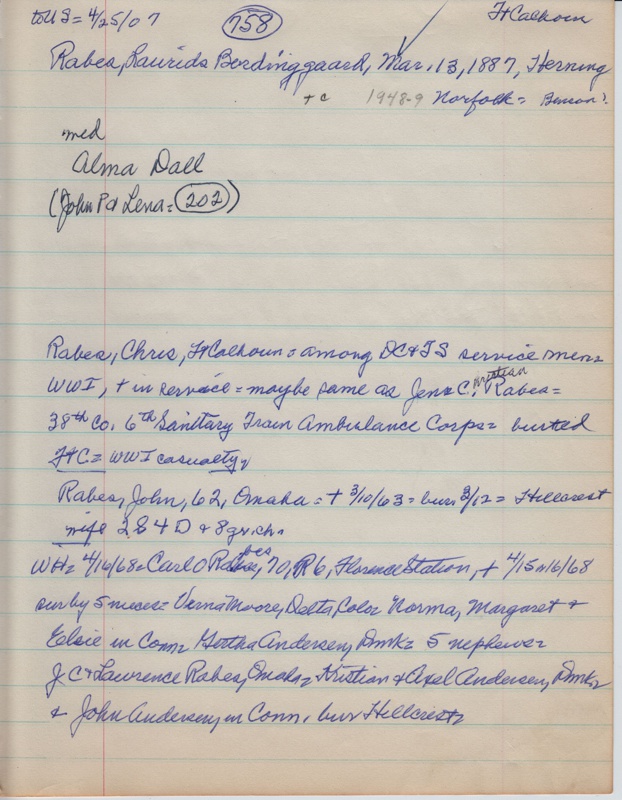 to US = 4/25/07 758 Ft Calhoun
Rabes, Laurids Bordinggaard, Mar. 13, 1887, Herning
+ c 1948-9 Norfolk = Benson?
med
Alma Dall
(John P & Lena = 202)
Rabes, Chris, Ft Calhoun = among DC & FS service men =
WWI, + in service = maybe same as Jens C. Kristian Rabes =
38th Co. 6th Sanitary Train Ambulance Corps = buried
Ft C = WWI casualty,
Rabes, John, 62, Omaha = + 3/10/63 = bur. 3/12 = Hillcrest
wife 2 S 4 D & 8 gr.ch.
WH = 4/16/68 = Carl O Rabes, 70, R6, Florence Station, + 4/15 or 16/68
sur by 5 nieces = Verna Moore, Delta, Colo Norma, Margaret &
Elsie in Conn = Gertha Andersen, Dmk = 5 nephews =
J C & Lawrence Rabes, Omaha, Kristian & Axel Andersen, Dmk,
& John Andersen, in Conn, bur Hillcrest,